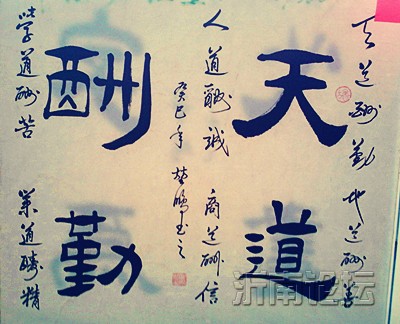 天道酬勤 地道酬善
天道
人道酬誠 商道酬信
癸巳年 书之
酬勤
學道酬苦 業道酬精
沂南论坛